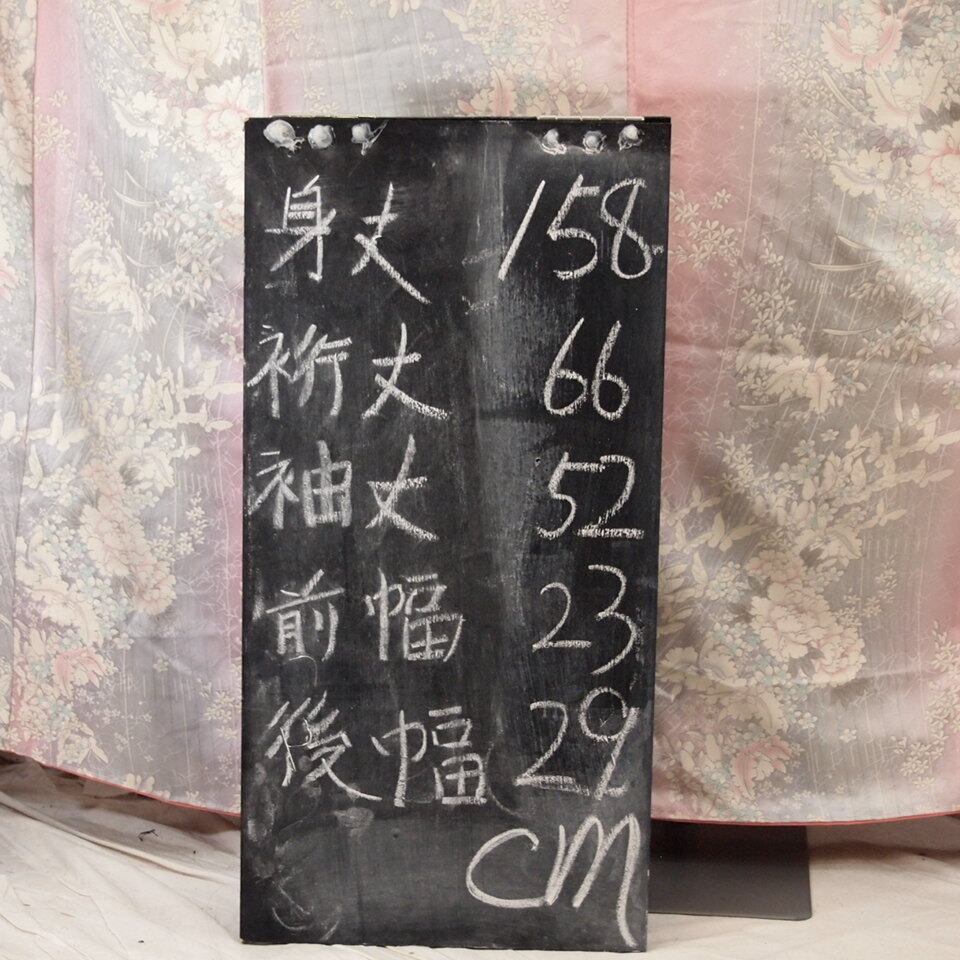 身丈 158
裄丈 66
袖丈 52
前幅 23
後幅 29
cm